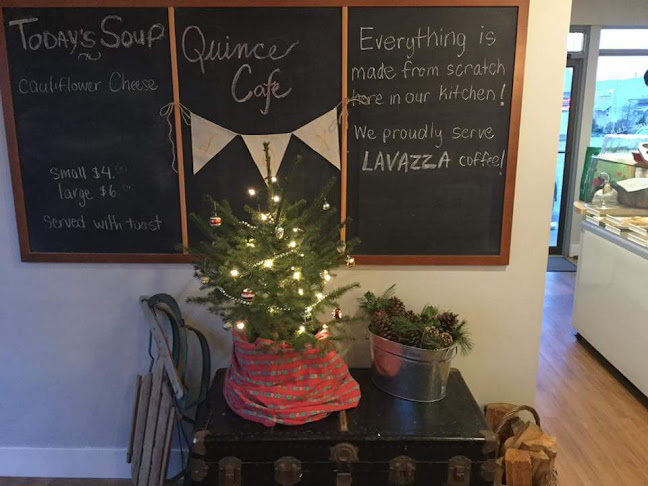 TODAY'S SOUP
Cauliflower Cheese
small $4.00
large $6.
served with toast
Quince
Cafe
Everything is
made from scratch
here in our kitchen!
We proudly serve
LAVAZZA coffee!